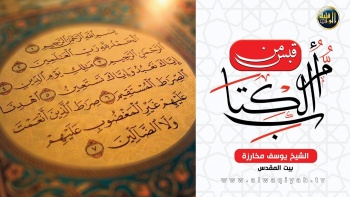 بسم الله الرحمن الرحيم
الحمد لله رب العالمين
الرحمن الرحيم ملك يوم الدين
إياك نعبد وإياك نستعين اهدنا
الصرط المستقيم صرط الذين أنعمت
عليهم غير المغضوب عليهم
ولا الضالين ٧
الواقية
قبس من
أم الكتاب
الشيخ يوسف مخارزة
بيت المقدس
www.alwaqiyah.tv